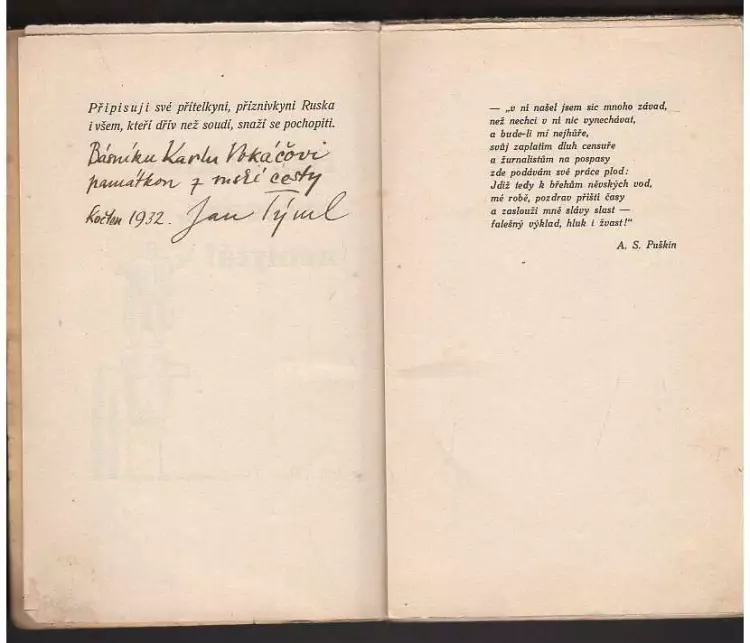 Připisuji své přítelkyni, příznivkyni Ruska
i všem, kteří dřív než soudí, snaží se pochopiti.
Básníku Karlu Vokáčovi
památkou z ruské cesty
Květen 1932. Jan Týml
— „v ní našel jsem sic mnoho závad,
než nechci v ní nic vynechávat,
a bude-li mi nejhůře,
svůj zaplatím dluh censuře
a žurnalistům na pospasy
zde podávám své práce plod:
Jdiž tedy k břehům něvských vod,
mé robě, pozdrav příští časy
a zaslouží mně slávy slast —
falešný výklad, hluk i žvast!"
A. S. Puškin